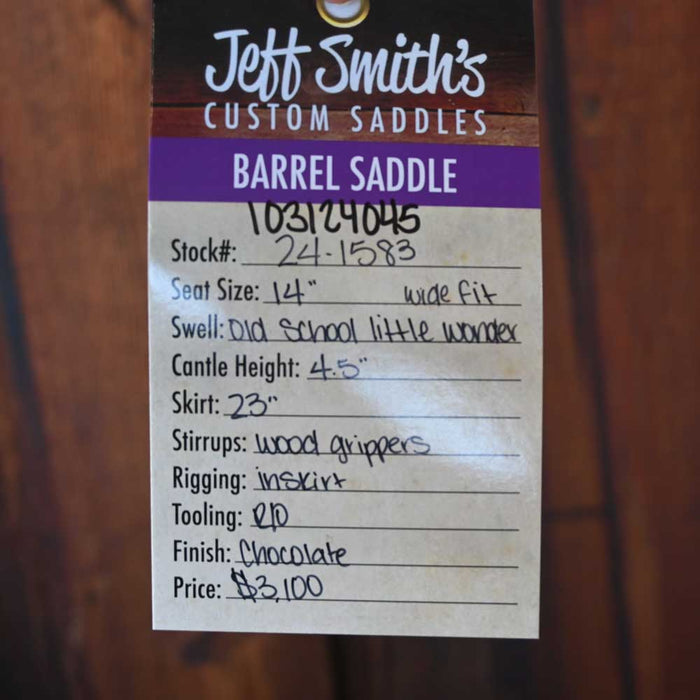 Jeff Smith's
CUSTOM SADDLES
BARREL SADDLE
103124045
Stock#: 24-1583
Seat Size: 14" wide fit
Swell: Old School little wonder
Cantle Height: 4.5"
Skirt: 23"
Stirrups: wood grippers
Rigging: inskirt
Tooling: R/O
Finish: Chocolate
Price: $3,100